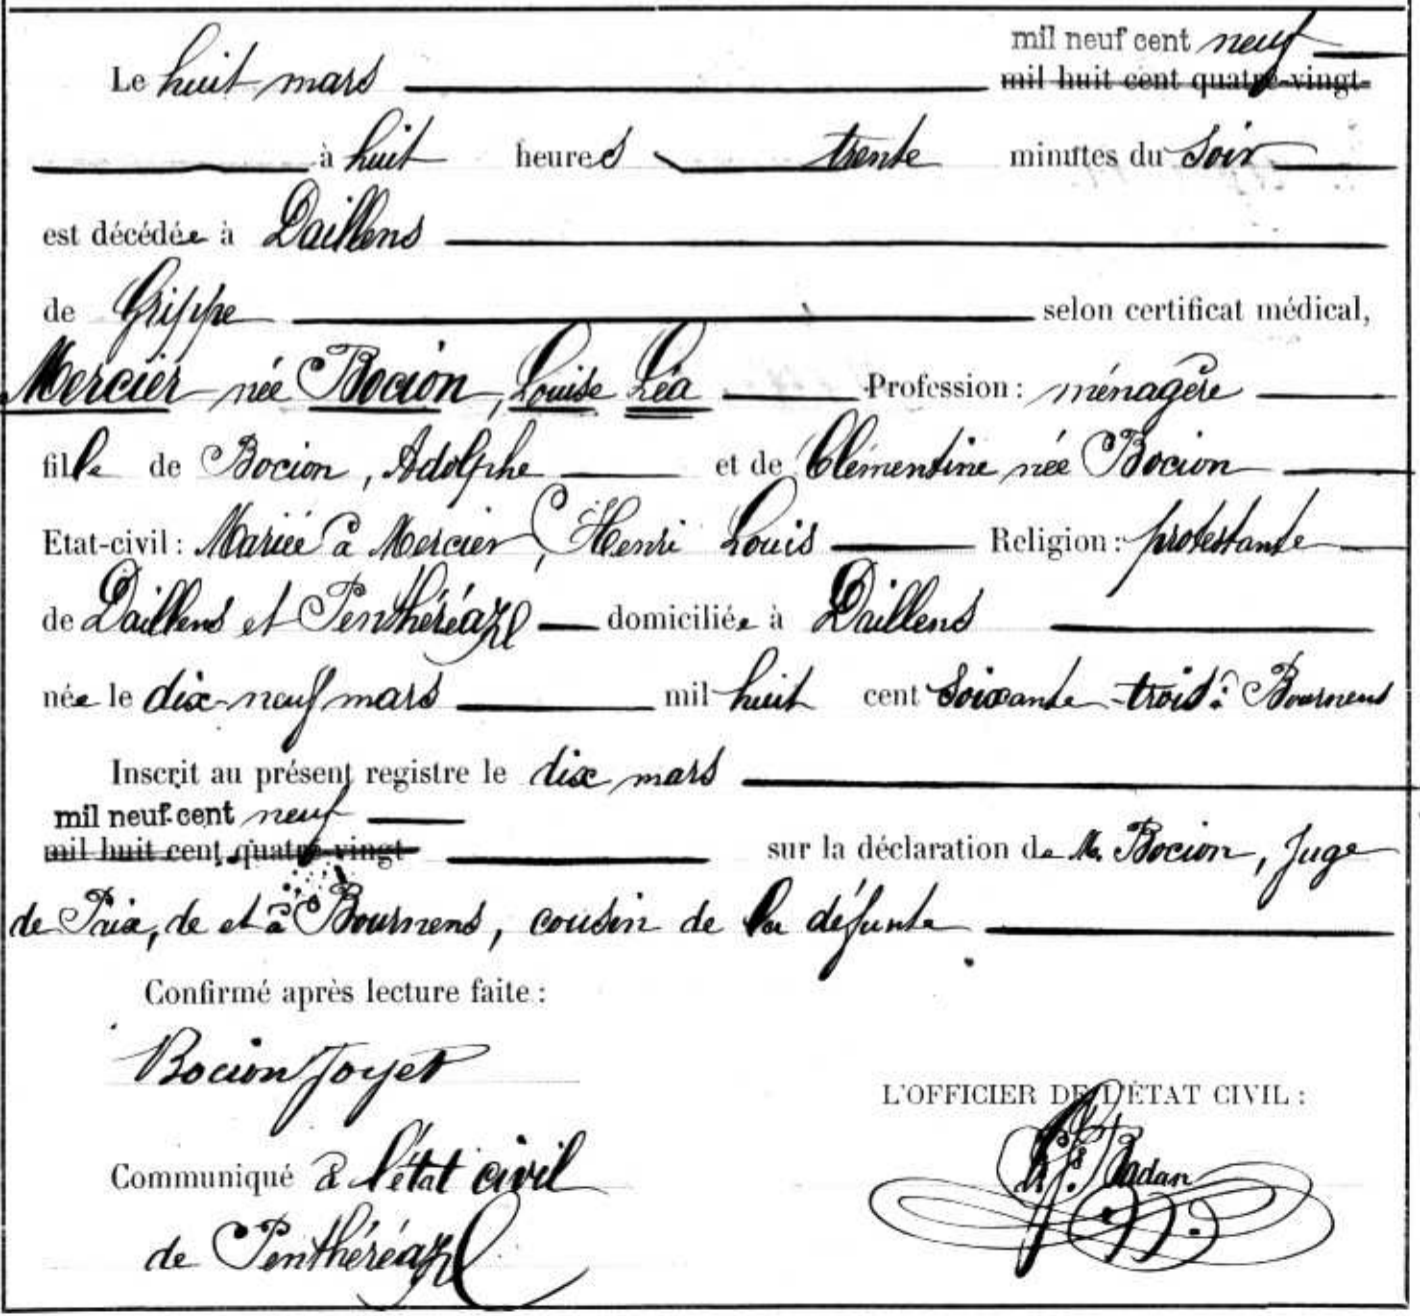 mil neuf cent neuf
Le huit mars mil huit cent quatre-vingt-
à huit heures trente minutes du soir
est décédée à Daillens
de Grippe selon certificat médical,
Mercier née Bocion, Louise Léa Profession : ménagère
fille de Bocion, Adolphe et de Clémentine née Bocion
Etat-civil : Mariée à Mercier, Henri Louis Religion : protestante
de Daillens et Penthéréaz domiciliée à Daillens
née le dix-neuf mars mil huit cent soixante-trois à Bournens
Inscrit au présent registre le dix mars
mil neuf cent neuf
mil huit cent quatre-vingt- sur la déclaration de M. Bocion, Juge
de Paix, de et à Bournens, cousin de la défunte
Confirmé après lecture faite :
Bocion Joyet
L'OFFICIER DE L'ÉTAT CIVIL :
Communiqué à l'état civil
de Penthéréaz